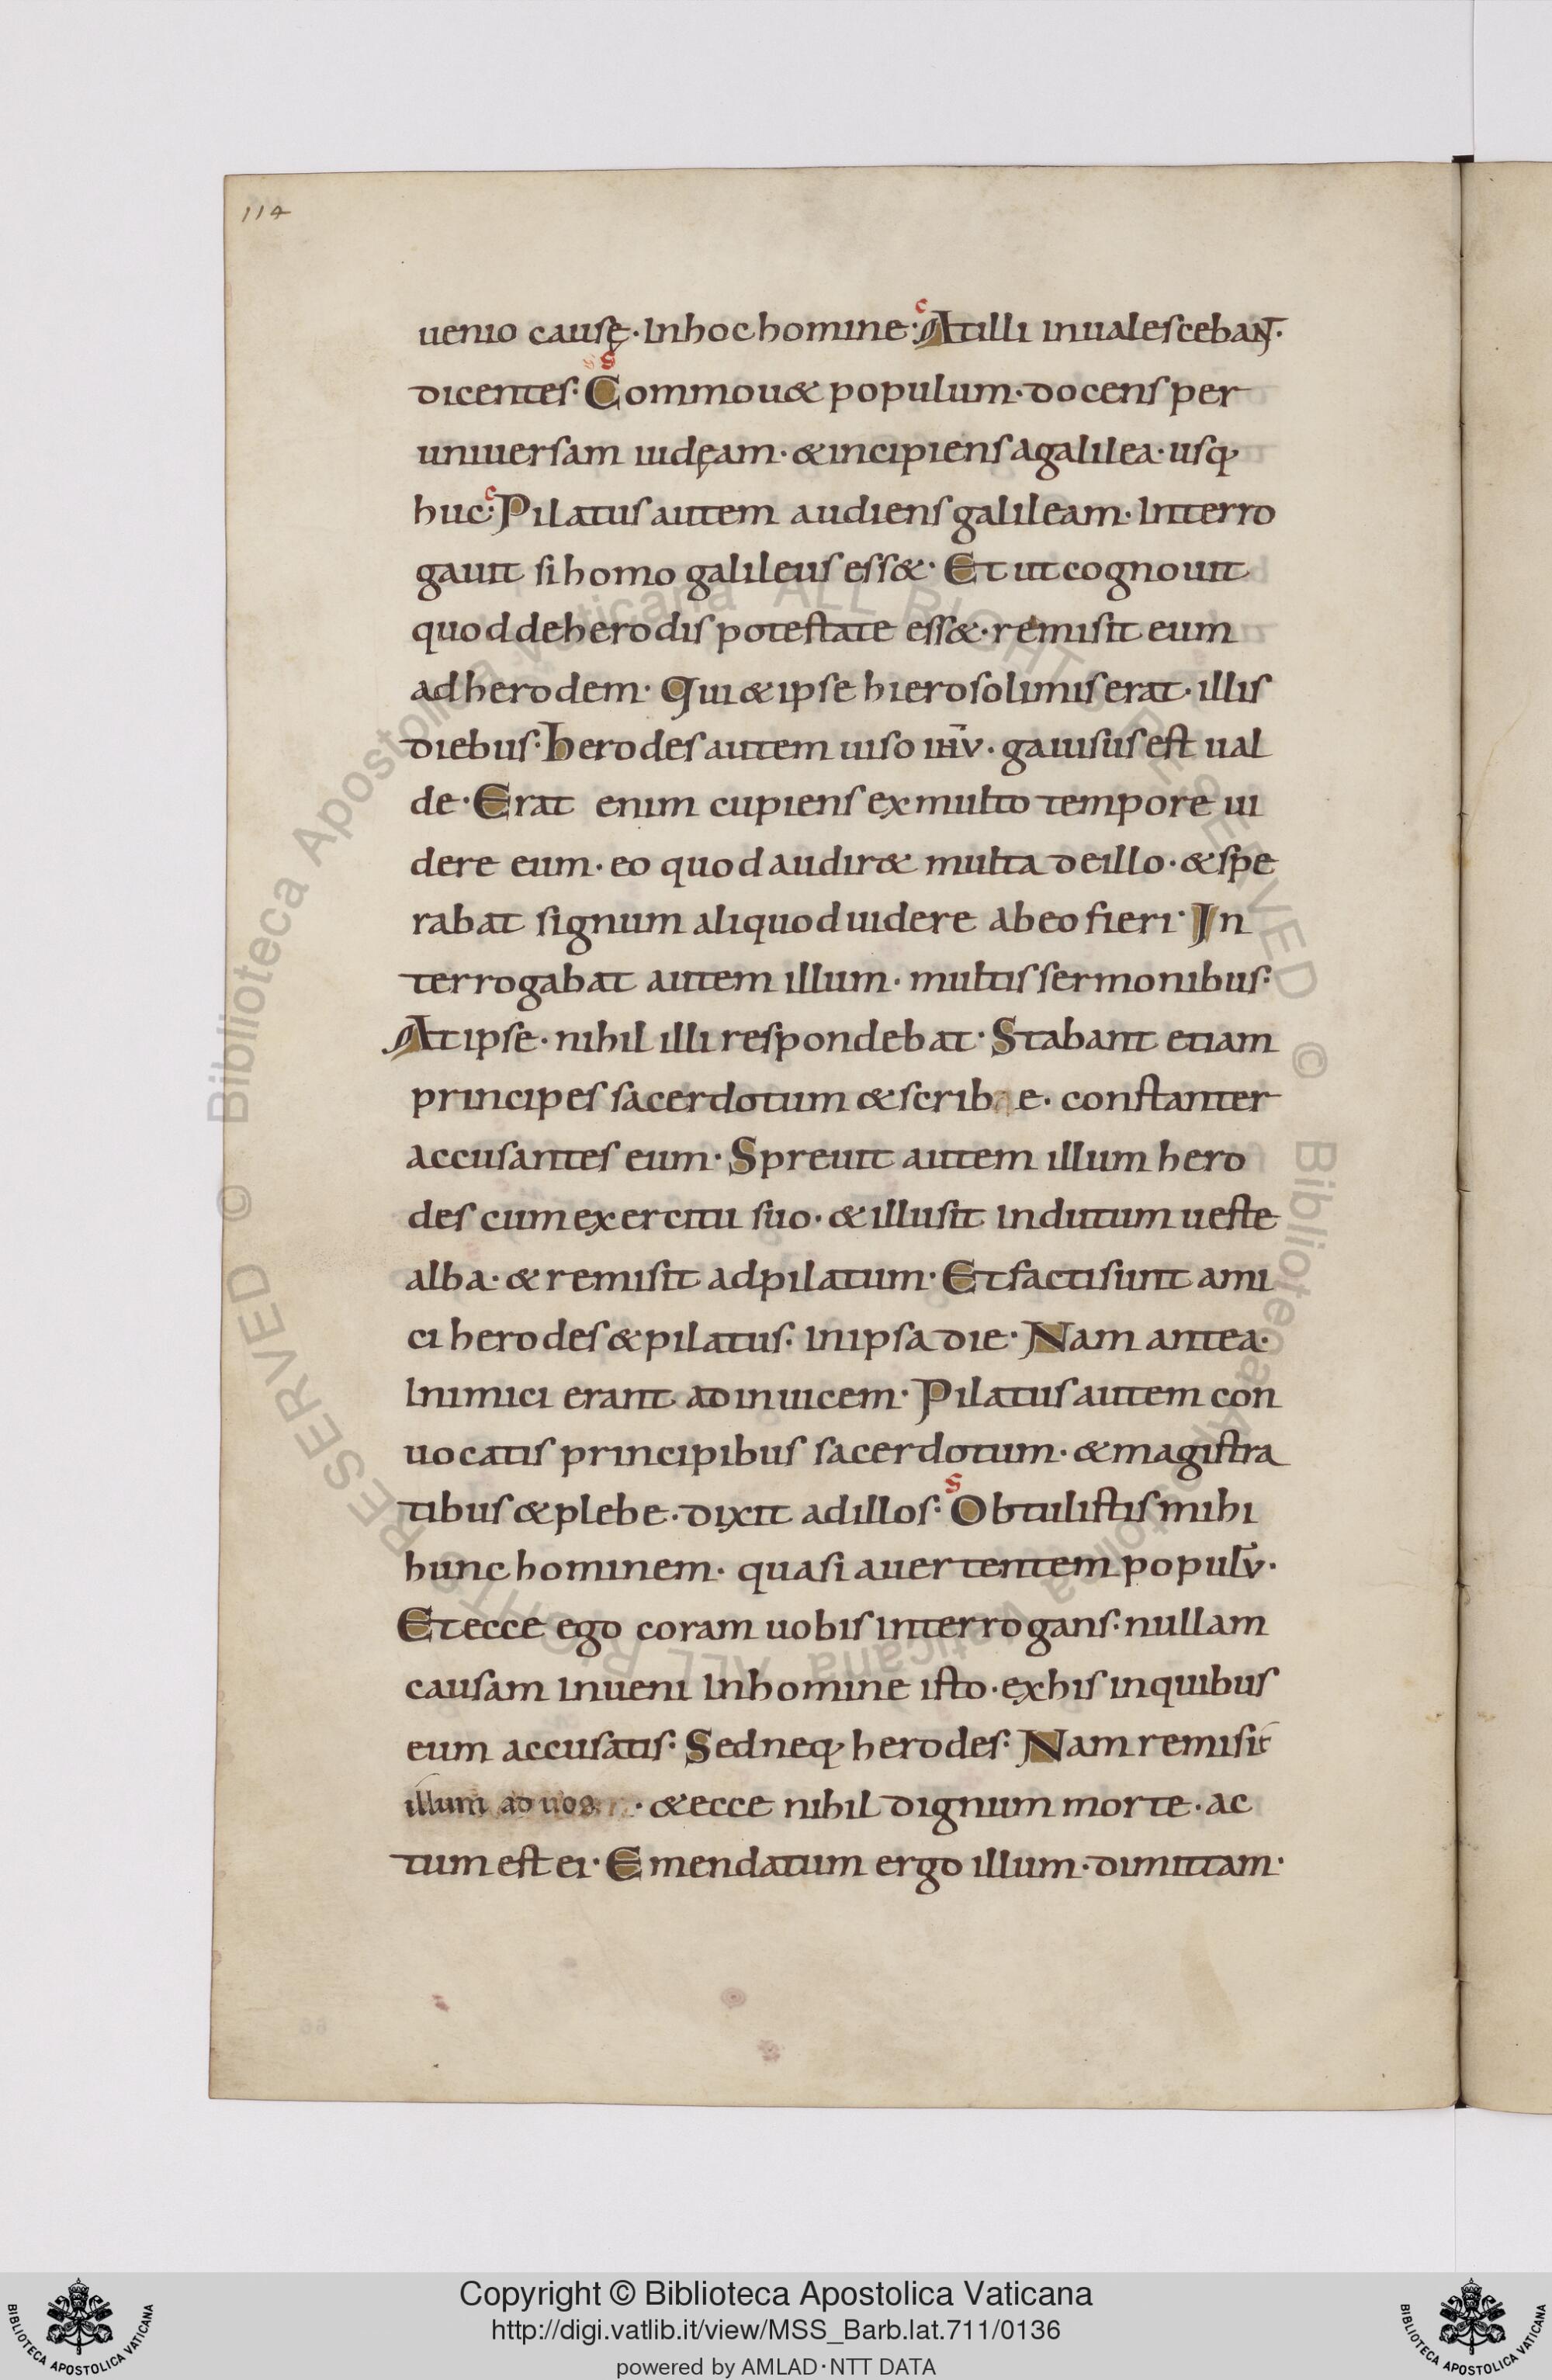 114
uenio causę · In hoc homine : At illi inualesceban͞t ·
dicentes : Commouet populum · docens per
uniuersam iudęam · & incipiens a galilea · usq;
huc : Pilatus autem audiens galileam · Interro
gauit si homo galileus ess& · Et ut cognouit
quod de herodis potestate ess& · remisit eum
ad herodem · Qui & ipse hierosolimis erat · illis
diebus · herodes autem uiso ih̅v · gauisus est ual
de · Erat enim cupiens ex multo tempore ui
dere eum · eo quod audir& multa de illo · & spe
rabat signum aliquod uidere ab eo fieri · In
terrogabat autem illum · multis sermonibus :
At ipse · nihil illi respondebat · Stabant etiam
principes sacerdotum & scribae · constanter
accusantes eum · Spreuit autem illum hero
des cum exercitu suo · & illusit Indutum ueste
alba · & remisit ad pilatum · Et facti sunt ami
ci herodes & pilatus · In ipsa die · Nam antea ·
Inimici erant ad inuicem · Pilatus autem con
uocatis principibus sacerdotum · & magistra
tibus & plebe · dixit ad illos : Obtulistis mihi
hunc hominem · quasi auertentem popul̅v ·
Et ecce ego coram uobis interrogans · nullam
causam Inueni In homine isto · ex his in quibus
eum accusatis : Sed neq; herodes : Nam remisit
illum ad uos · & ecce nihil dignum morte · ac
tum est ei · Emendatum ergo illum · dimittam ·
Copyright © Biblioteca Apostolica Vaticana
http://digi.vatlib.it/view/MSS_Barb.lat.711/0136
powered by AMLAD·NTT DATA
BIBLIOTECA APOSTOLICA VATICANA
BIBLIOTECA APOSTOLICA VATICANA
© Biblioteca Apostolica Vaticana ALL RIGHTS RESERVED © Biblioteca Apostolica Vaticana ALL RIGHTS RESERVED